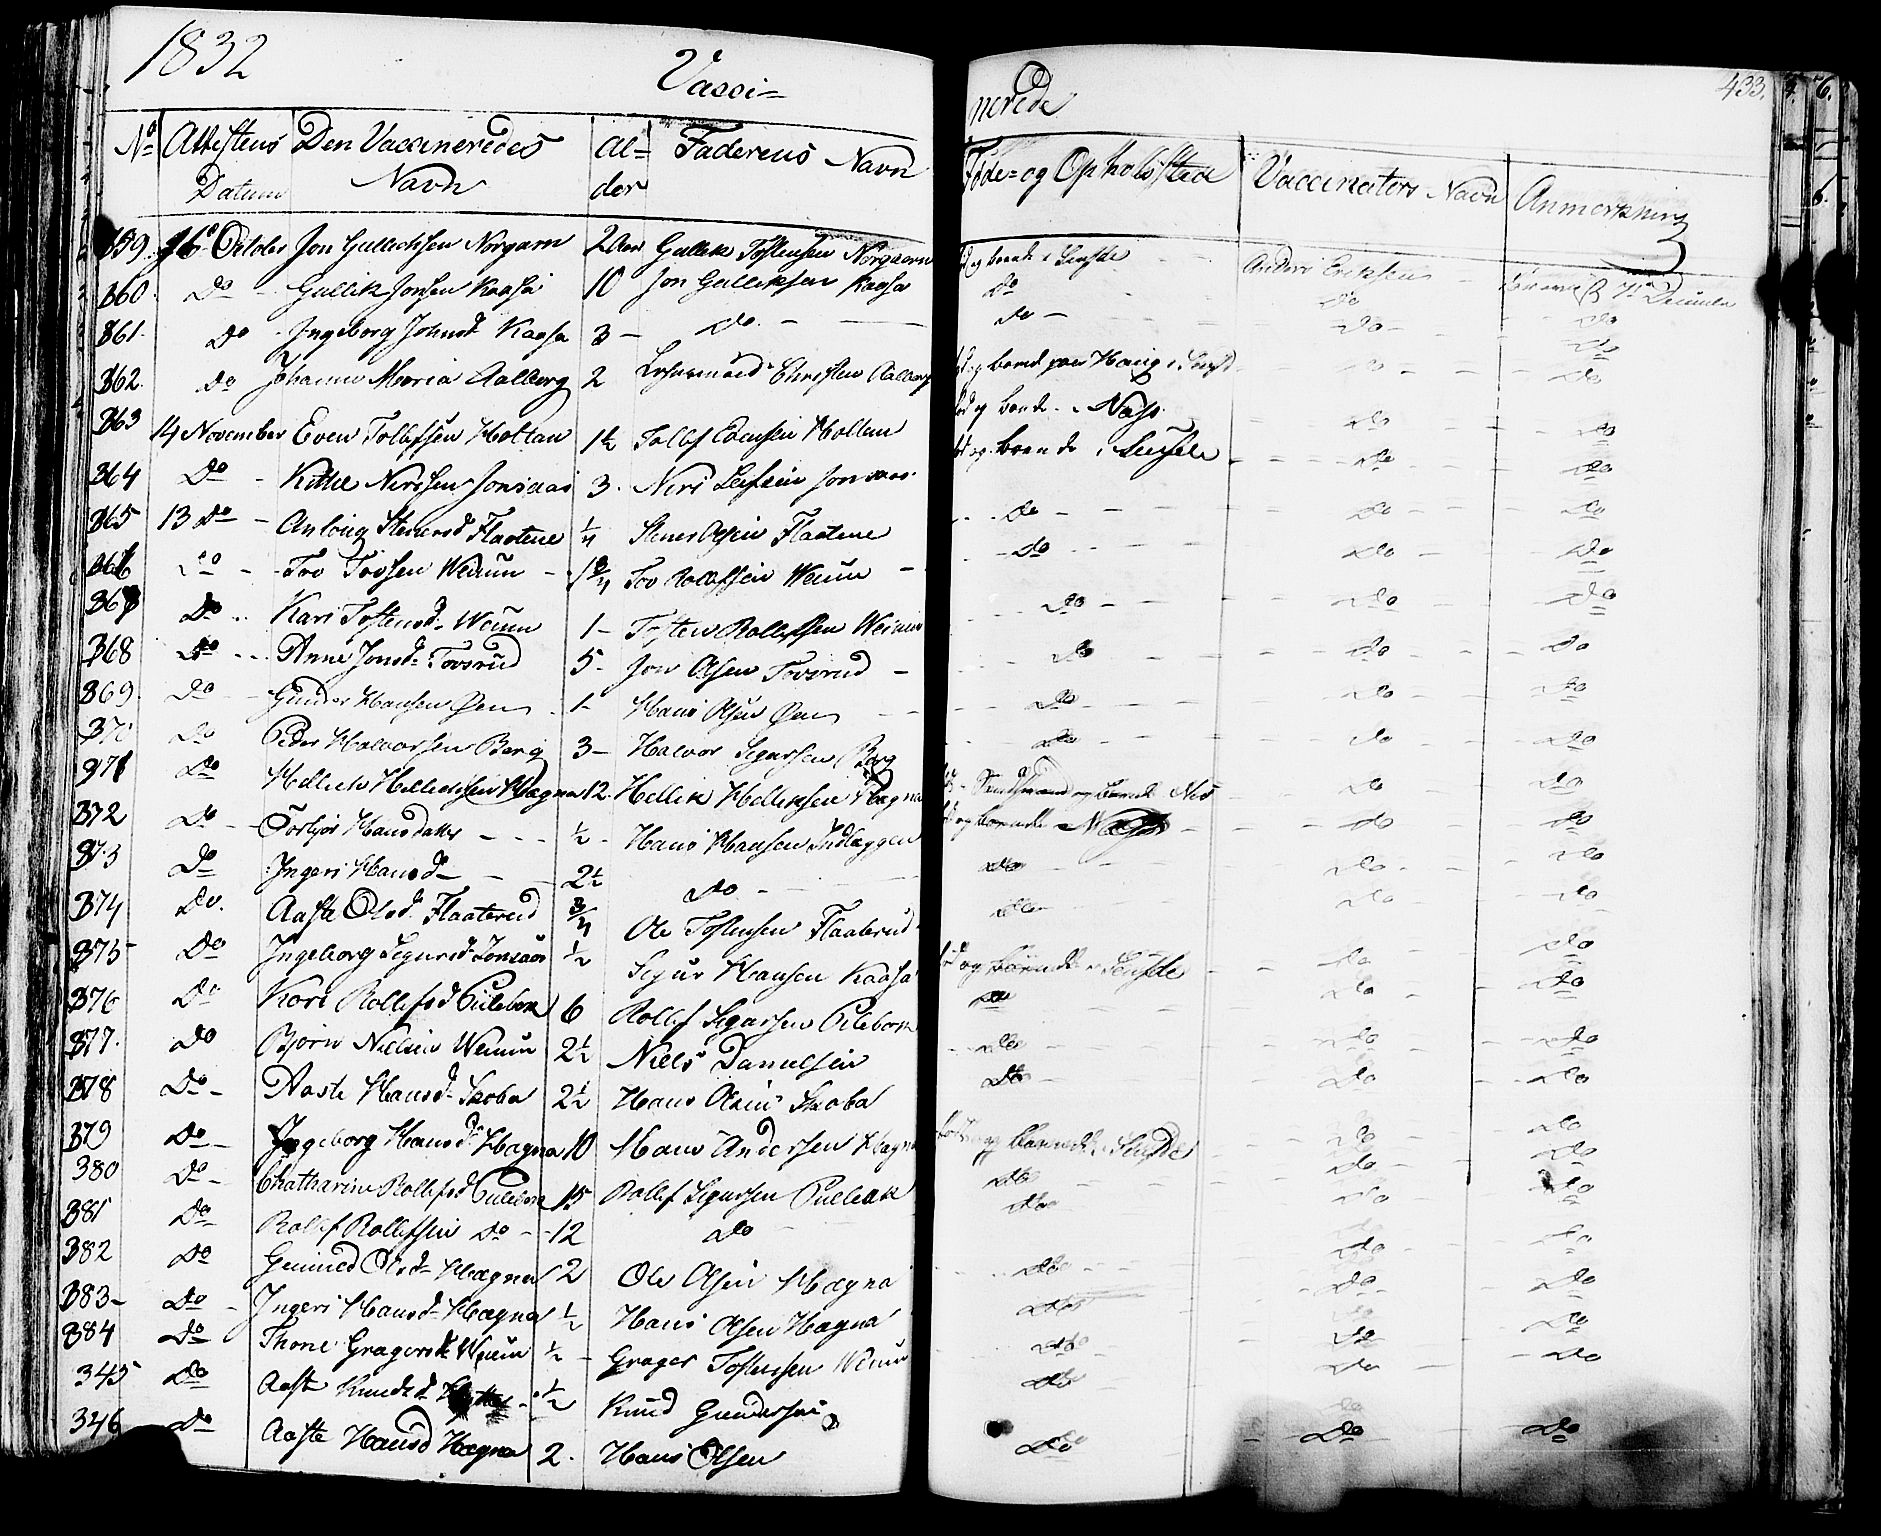 1832 Vacci= nerede 433.
No Attestens Datum Den Vaccineredes Navn Al= der Faderens Navn Føde= og Opholdssted Vaccinators Navn Anmerkning
359. 16 October Jon Gullichsen Norgarn 2 Aar Gullik Tostensen Norgaarn og boende i Anders Eriksen 7de December
360. Do Gullik Jonsen Kaasa 10 Jon Gulliksen Kaasa Do Do Do
361. Do Ingeborg Johnsd. Kaasa 3 Do Do Do Do
362. Do Johanne Maria Aalberg 2 Christen Aalberg og boende paa Do Do
363 14 November Even Tollefsen Holtan 1½ Tollef Evensen Holtan og boende i Næss Do Do
364 Do Kittel Nirisen Jonsaas 3. Niri Leifsen Jonsaas og boende i Do Do
365 13 Do Anlaug Steners Flaatene ¼ Stener Olsen Flaatene Do Do Do
366 Do Tov Tovsen Weium 1¾ Tov Rollefsen Weium Do Do Do
367 Do Kari Tostensd. Weium 1 Tosten Rollefsen Weium Do Do Do
368 Do Anne Jonsd. Tovsrud 5 Jon Olsen Tovsrud Do Do Do
369. Do Gunder Hansen Øen 1 Hans Olsen Øen Do Do Do
370 Do Peder Halvorsen Berg 3 Halvor Sigursen Berg Do Do Do
371 Do Hellik Helliksen Hægna 12. Hellik Helliksen Hægna og boende Do Do
372 Do Torbjør Hansdatter ½ Hans Hansen Indlæggen og boende Næss Do Do
373 Do Ingeri Hansd 2½ Do Do Do Do
374 Do Aaste Olsd. Flaaterud ¾ Ole Tostensen Flaaterud Do Do Do
375 Do Ingeborg Sigursd. Jonsaas ½ Sigur Hansen Kaasa og boende i Do Do
376 Do Kari Rollefsd Pulebok 6 Rollef Sigursen Pulebok Do Do Do
377. Do Bjørn Nielsen Weium 2½ Niels Danielsen Do Do Do
378 Do Aaste Hansd. Skoba 2½ Hans Olsen Skoba Do Do Do
379 Do Ingeborg Hansd. Hægna 10 Hans Andersen Hægna og boende i Do Do
380 Do Chatharine Rollefsd Pulebok 15 Rollef Sigursen Pulebok Do Do Do
381 Do Rollef Rollefsen Do 12 Do Do Do Do
382 Do Gunild Olsd. Hægna 2 Ole Olsen Hægna Do Do Do
383 Do Ingeri Hansd. Hægna ½ Hans Olsen Hægna Do Do Do
384 Do Thone Gragersd Weium ½ Grager Tostensen Weium Do Do Do
345 Do Aaste Knudsd ½ Knud Gundersen Do Do Do
346 Do Aaste Hansd Hægna 2. Hans Olsen Do Do Do